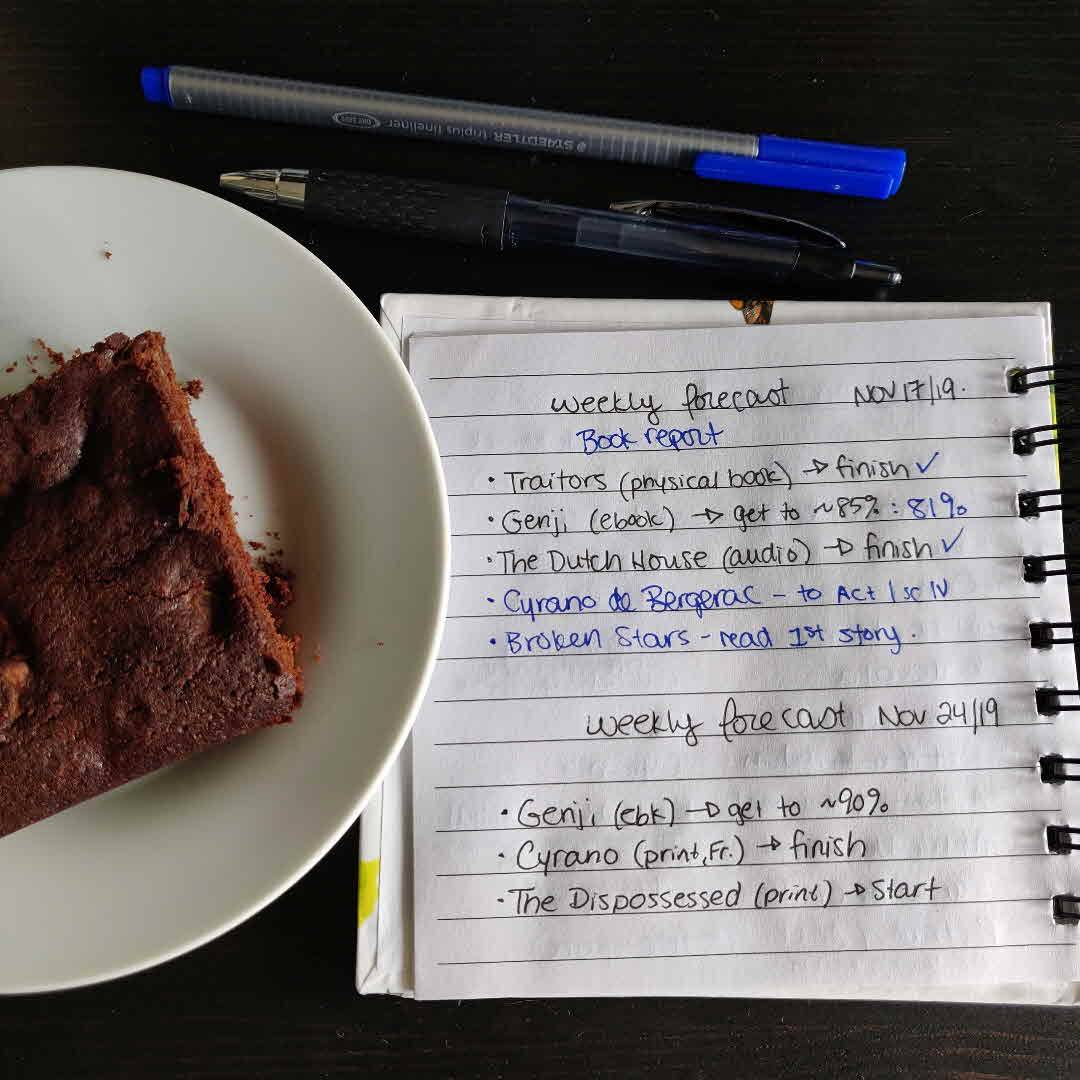 STAEDTLER triplus fineliner DRY SAFE
weekly forecast NOV 17/19.
Book report
• Traitors (physical book) → finish ✓
• Genji (ebook) → get to ~85% : 81%
• The Dutch House (audio) → finish ✓
• Cyrano de Bergerac - to Act I sc IV
• Broken Stars - read 1st story.
weekly forecast Nov 24/19
• Genji (ebk) → get to ~90%
• Cyrano (print, Fr.) → finish
• The Dispossessed (print) → Start